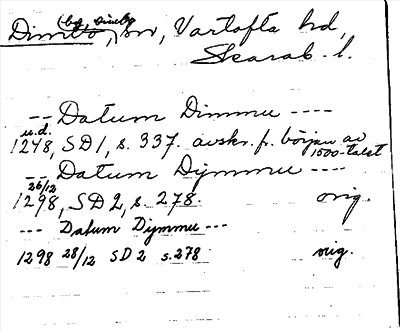 (bg, Dimbo
Dimbo, sn, Vartofta hd,
Skarab. l.
-- Datum Dimmu ----
u.d.
1248, SD 1, s. 337. avskr. fr. början av
1500-talet
-- Datum Dymmu ----
26/12
1298, SD 2, s. 278. orig.
--- Datum Dymmu ---
1298 28/12 SD 2 s. 278 orig.